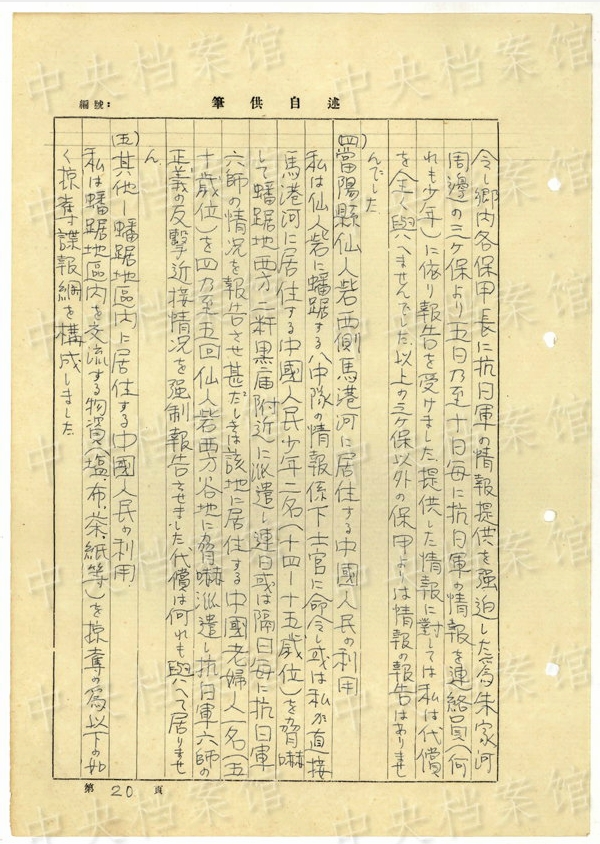 中央档案馆
編號：
筆供自述
令し郷内各保甲長に抗日軍の情報提供を强迫した爲朱家河
周邊の三ヶ保より五日乃至十日毎に抗日軍の情報を連絡員(何
れも少年)に依り報告を受けました．提供した情報に対しては私は代償
を全く與へませんでした．以上の三ヶ保以外の保甲よりは情報の報告はありませ
んでした．
(四)當陽縣仙人砦西側馬港河に居住する中國人民の利用
私は仙人砦に蟠踞する八中隊の情報係下士官に命令し或は私が直接
馬港河に居住する中國人民少年二名(十四－十五歳位)を脅嚇
して蟠踞地西方二粁黒庙附近に派遣し連日或は隔日毎に抗日軍
六師の情况を報告させ甚だしきは該地に居住する中國老婦人一名(五
十歳位)を四乃至五回仙人砦西方谷地に脅嚇派遣し抗日軍六師の
正義の反擊近接情况を强制報告させました代償は何れも與へて居りませ
ん．
(五)其他－蟠踞地區内に居住する中國人民の利用
私は蟠踞地區内を交流する物資(塩、布、茶、紙等)を掠奪の爲以下の如
く掠奪諜報網を構成しました
第 20 頁